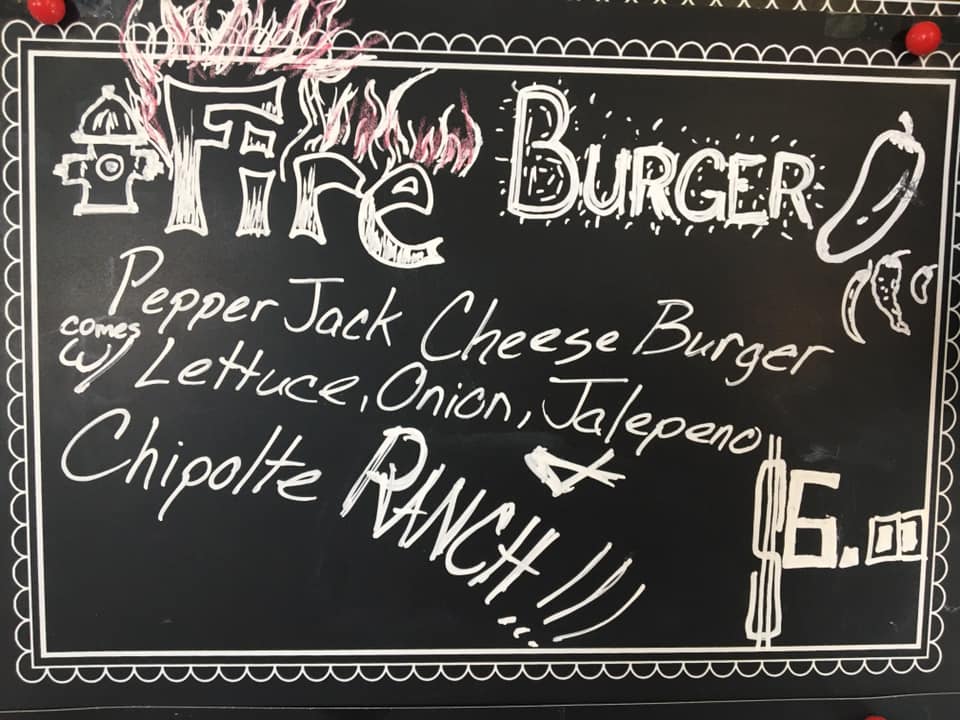 Fire BURGER
Pepper Jack Cheese Burger
comes w/ Lettuce, Onion, Jalepeno
& Chipolte RANCH!!!
$6.00